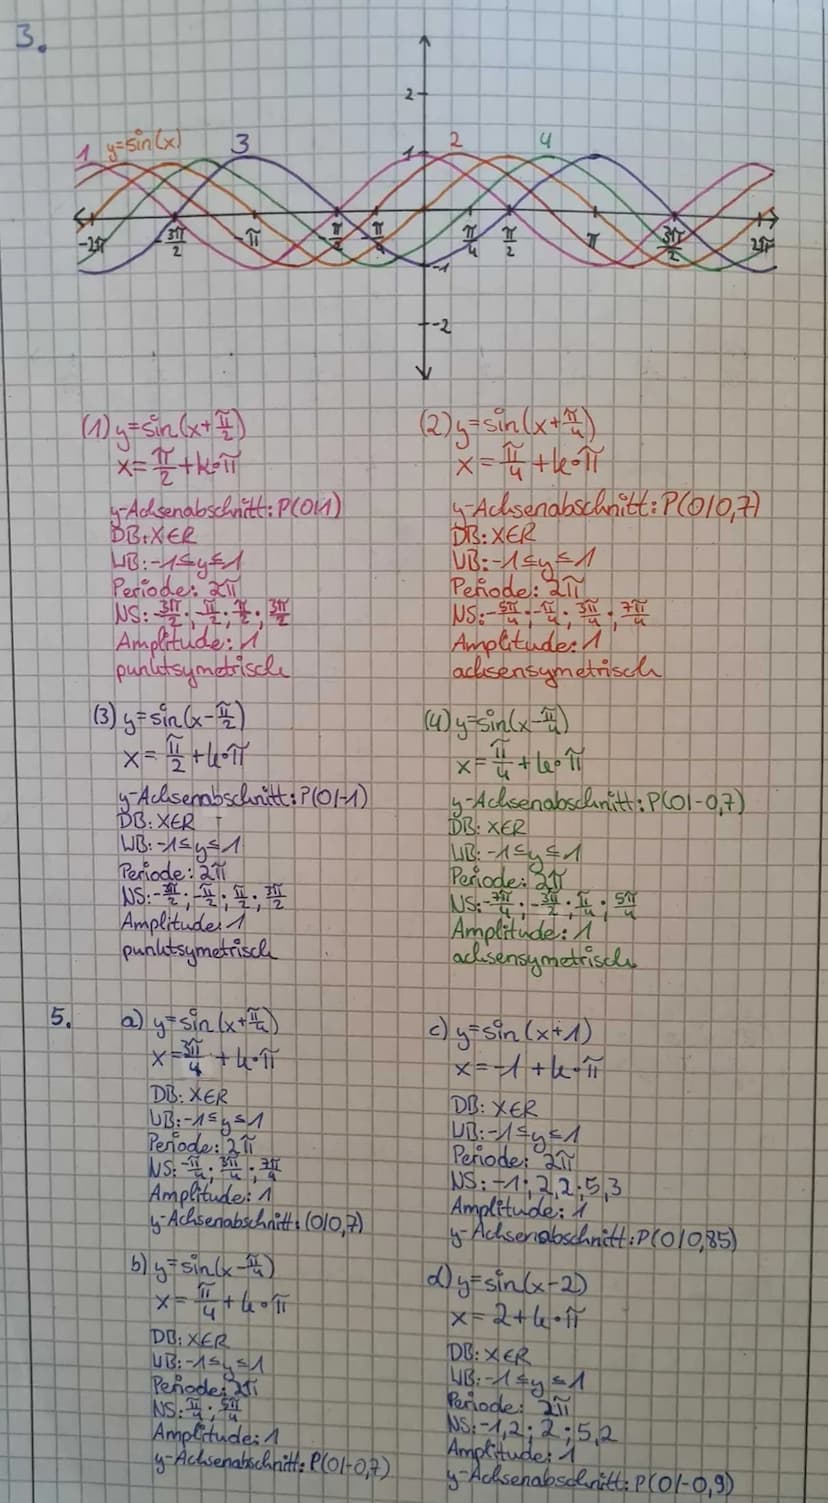 3.
2
1 y=sin(x) 3 1 2 4
-2π -3π/2 -π -π/2 -π/4 π/4 π/2 π 3π/2 2π
-1
-2
(1) y=sin(x+π/2)
x=π/2+k·π
y-Achsenabschnitt: P(0|1)
DB: x∈R
WB: -1≤y≤1
Periode: 2π
NS: -3π/2; -π/2; π/2; 3π/2
Amplitude: 1
punktsymetrisch
(2) y=sin(x+π/4)
x=π/4+k·π
y-Achsenabschnitt: P(0|0,7)
DB: x∈R
WB: -1≤y≤1
Periode: 2π
NS: -5π/4; -π/4; 3π/4; 7π/4
Amplitude: 1
achsensymetrisch
(3) y=sin(x-π/2)
x=π/2+k·π
y-Achsenabschnitt: P(0|-1)
DB: x∈R
WB: -1≤y≤1
Periode: 2π
NS: -3π/2; -π/2; π/2; 3π/2
Amplitude: 1
punktsymetrisch
(4) y=sin(x-π/4)
x=π/4+k·π
y-Achsenabschnitt: P(0|-0,7)
DB: x∈R
WB: -1≤y≤1
Periode: 2π
NS: -7π/4; -3π/2; π/4; 5π/4
Amplitude: 1
achsensymetrisch
5. a) y=sin(x+π/4)
x=3π/4+k·π
DB: x∈R
WB: -1≤y≤1
Periode: 2π
NS: -π/4; 3π/4; 7π/4
Amplitude: 1
y-Achsenabschnitt: (0|0,7)
b) y=sin(x-π/4)
x=π/4+k·π
DB: x∈R
WB: -1≤y≤1
Periode: 2π
NS: π/4; 5π/4
Amplitude: 1
y-Achsenabschnitt: P(0|-0,7)
c) y=sin(x+1)
x=-1+k·π
DB: x∈R
WB: -1≤y≤1
Periode: 2π
NS: -1; 2,2; 5,3
Amplitude: 1
y-Achsenabschnitt: P(0|0,85)
d) y=sin(x-2)
x=2+k·π
DB: x∈R
WB: -1≤y≤1
Periode: 2π
NS: -1,2; 2; 5,2
Amplitude: 1
y-Achsenabschnitt: P(0|-0,9)